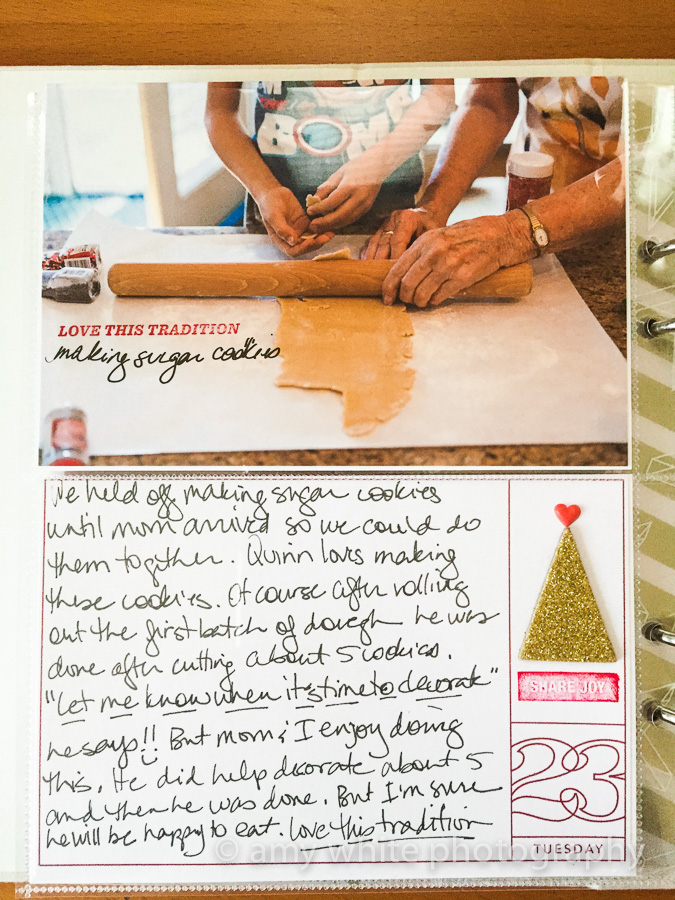 LOVE THIS TRADITION
making sugar cookies
We held off making sugar cookies
until mom arrived so we could do
them together. Quinn loves making
these cookies. Of course after rolling
out the first batch of dough he was
done after cutting about 5 cookies.
"Let me know when it's time to decorate"
he says!! But mom & I enjoy doing
this. He did help decorate about 5
and then he was done. But I'm sure
he will be happy to eat. Love this tradition
SHARE JOY
23
TUESDAY
© amy white photography